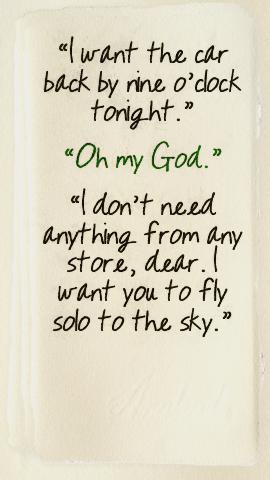 “I want the car
back by nine o’clock
tonight.”
“Oh my God.”
“I don’t need
anything from any
store, dear. I
want you to fly
solo to the sky.”